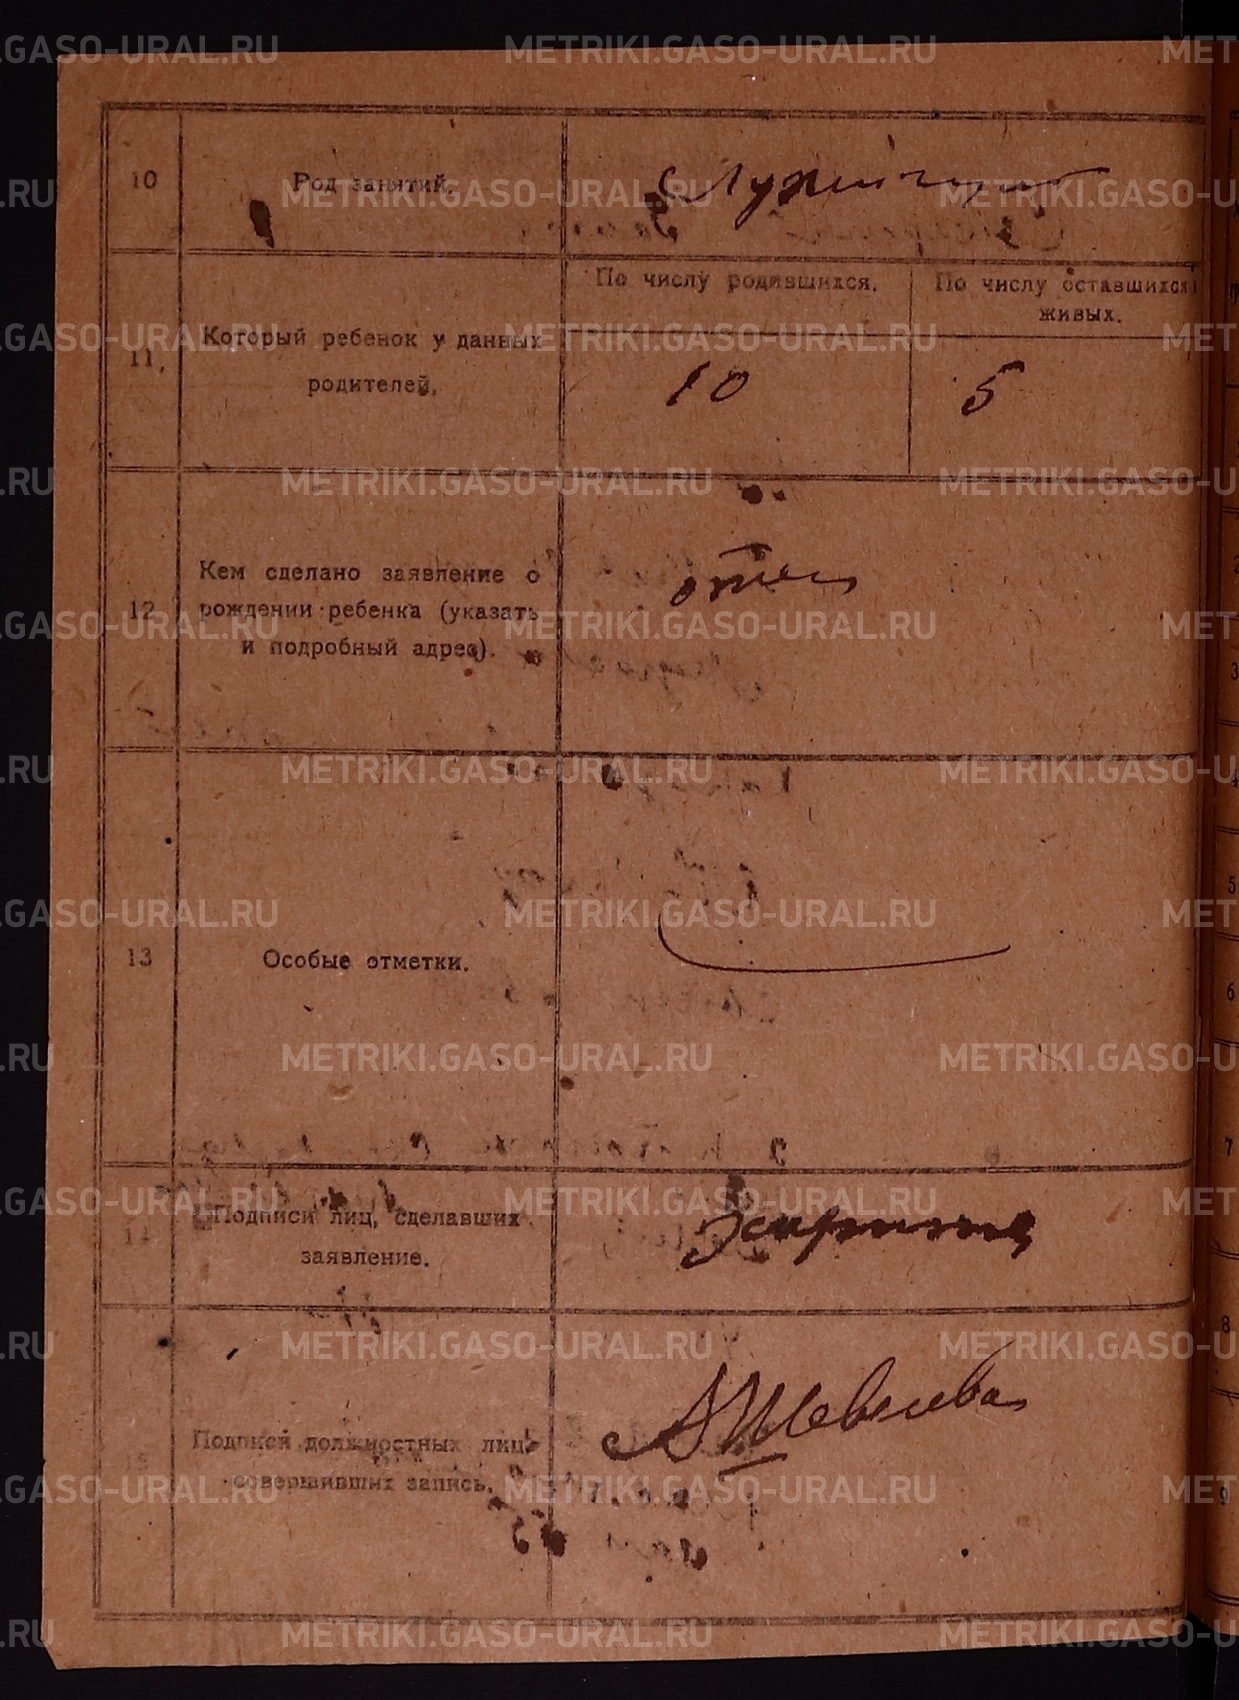 METRIKI.GASO-URAL.RU
10
Род занятий.
Служащий
11.
Который ребенок у данных
родителей.
По числу родившихся.
По числу оставшихся
живых.
10
5
12
Кем сделано заявление о
рождении ребенка (указать
и подробный адрес).
отец
13
Особые отметки.
14
Подписи лиц, сделавших
заявление.
15
Подписи должностных лиц,
совершивших запись.
Шевелева